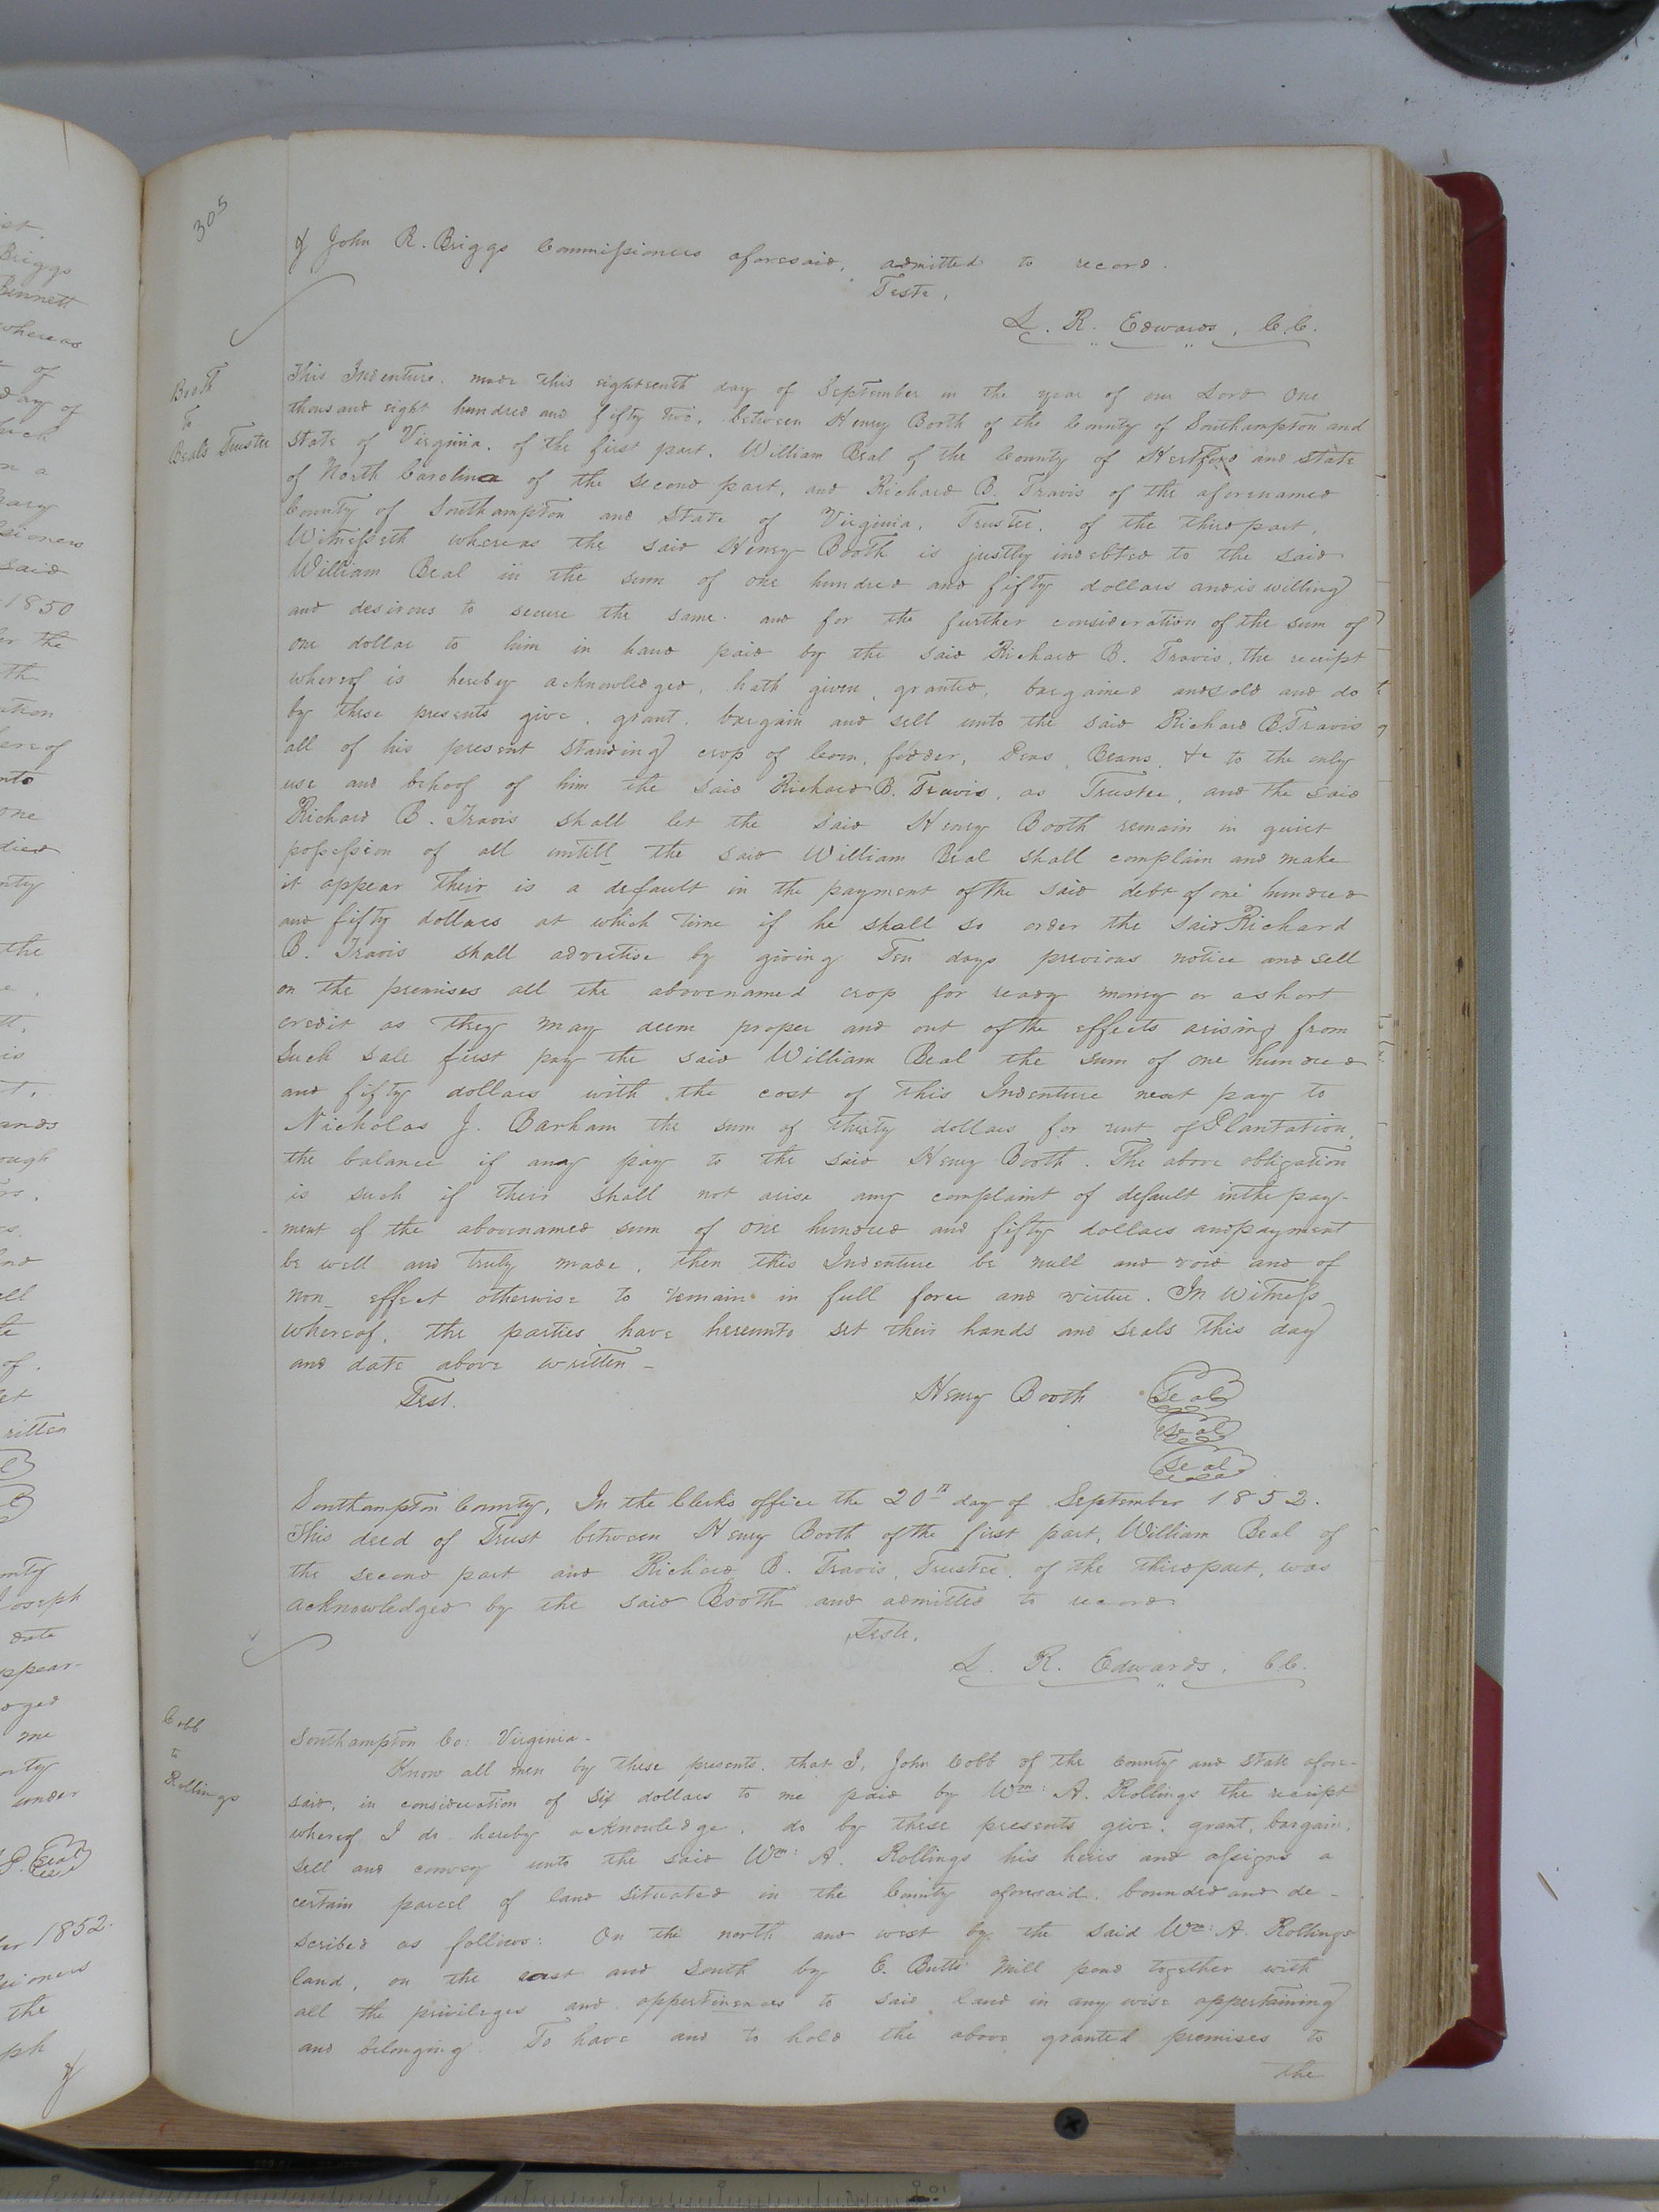 305
& John R. Briggs Commissioners aforesaid, admitted to record.
Teste,
L. R. Edwards, C.C.
Booth
To
Beals Trustee
This Indenture. made this eighteenth day of September in the year of our Lord One
thousand eight hundred and fifty two, between Henry Booth of the County of Southampton and
state of Virginia, of the first part. William Beal of the County of Hertford and state
of North Carolina of the second part, and Richard B. Travis of the aforenamed
County of Southampton and state of Virginia, Trustee, of the third part,
Witnesseth whereas the said Henry Booth is justly indebted to the said
William Beal in the sum of one hundred and fifty dollars and is willing
and desirous to secure the same. and for the further consideration of the sum of
one dollar to him in hand paid by the said Richard B. Travis, the receipt
whereof is hereby acknowledged, hath given, granted, bargained and sold and do
by these presents give, grant, bargain and sell unto the said Richard B. Travis
all of his present standing crop of Corn, fodder, Peas, Beans, &c to the only
use and behoof of him the said Richard B. Travis, as Trustee, and the said
Richard B. Travis shall let the said Henry Booth remain in quiet
possession of all untill the said William Beal shall complain and make
it appear their is a default in the payment of the said debt of one hundred
and fifty dollars at which time if he shall so order the said Richard
B. Travis shall advertise by giving Ten days previous notice and sell
on the premises all the abovenamed crop for ready money or a short
credit as they may deem proper and out of the effects arising from
such sale first pay the said William Beal the sum of one hundred
and fifty dollars with the cost of this Indenture next pay to
Nicholas J. Barham the sum of thirty dollars for rent of Plantation,
the balance if any pay to the said Henry Booth. The above obligation
is such if their shall not arise any complaint of default in the pay-
ment of the abovenamed sum of one hundred and fifty dollars and payment
be well and truly made, then this Indenture be null and void and of
non effect otherwise to remain in full force and virtue. In Witness
whereof, the parties have hereunto set their hands and seals this day
and date above written -
Test.
Henry Booth Seal
Seal
Seal
Southampton County, In the Clerk's office the 20th day of September 1852.
This deed of Trust between Henry Booth of the first part, William Beal of
the second part and Richard B. Travis, Trustee, of the third part, was
acknowledged by the said Booth and admitted to record
Teste,
L. R. Edwards, C.C.
Cobb
to
Rollings
Southampton Co: Virginia-
Know all men by these presents, that I, John Cobb of the County and State afore-
said, in consideration of Six dollars to me paid by Wm: A. Rollings the receipt
whereof I do hereby acknowledge, do by these presents give, grant, bargain,
sell and convey unto the said Wm: A. Rollings his heirs and assigns a
certain parcel of land situated in the County aforesaid, bounded and de-
scribed as follows: On the north and west by the said Wm: A. Rollings
land, on the east and South by E. Butts Mill pond together with
all the privileges and appertinences to said land in any wise appertaining
and belonging. To have and to hold the above granted premises to
the